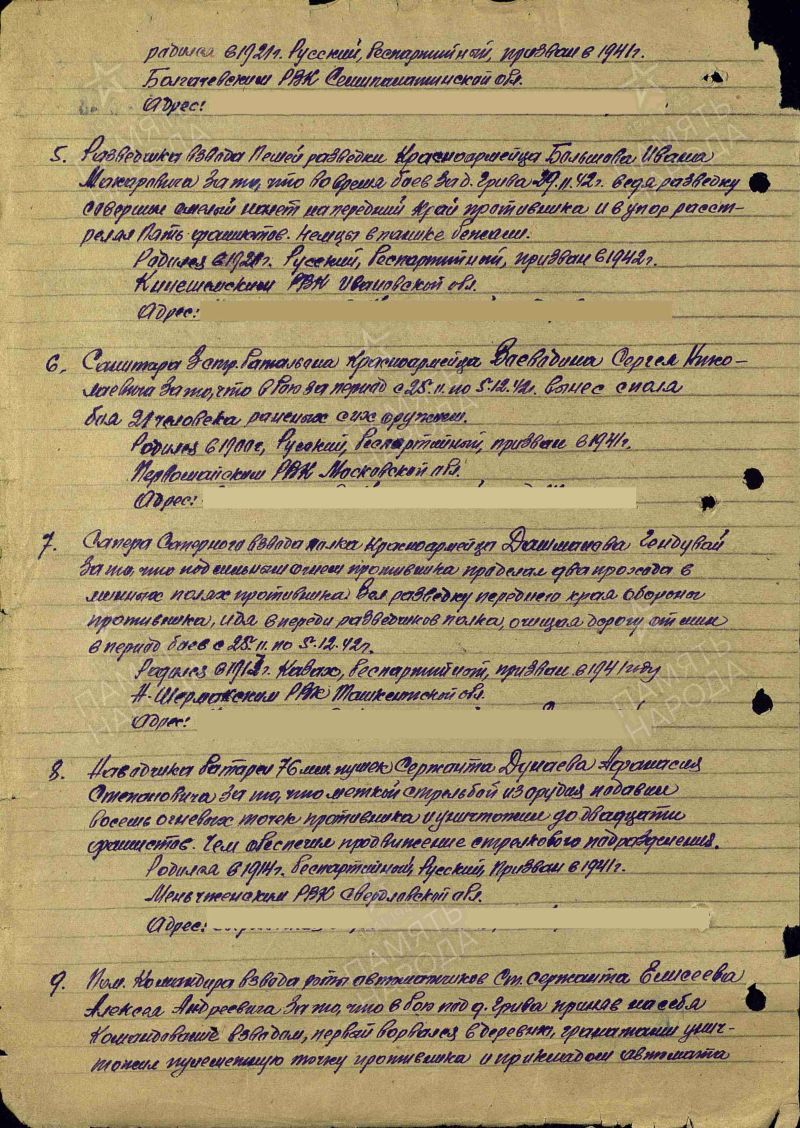 родился в 1921г. Русский, беспартийный, призван в 1941г.
РВК Семипалатинской обл.
Адрес:
5. Разведчика взвода Пешей разведки Красноармейца Большова Ивана
Макаровича за то, что во время боев за д. Грива 29.11.42г. ведя разведку
совершил смелый налет на передний край противника и в упор расст-
релял Пять фашистов. Немцы в панике бежали.
Родился в 1921г. Русский, беспартийный, призван в 1942г.
Кинешемским РВК Ивановской обл.
Адрес:
6. Санитара 3 стр. батальона Красноармейца Сергея Нико-
лаевича за то, что в бою за период с 25.11. по 5.12.42г. вынес с поля
боя 21 человека раненых с их оружием.
Родился в 1900г, Русский, беспартийный, призван в 1941г.
Первомайским РВК Московской обл.
Адрес:
7. Сапера Саперного взвода полка Красноармейца
за то, что под сильным огнем противника проделал два прохода в
минных полях противника. Вел разведку переднего края обороны
противника, идя впереди разведчиков полка, очищая дорогу от мин
в период боев с 25.11. по 5.12.42г.
Родился в г. Казах, беспартийный, призван в 1941 году
РВК Ташкентской обл.
Адрес:
8. Наводчика батареи 76 мм. пушек Сержанта Дунаева Афанасия
Степановича за то, что меткой стрельбой из орудия подавил
восемь огневых точек противника и уничтожил до двадцати
фашистов. Чем обеспечил продвижение стрелкового подразделения.
Родился в 1914г. беспартийный, Русский, Призван в 1941г.
РВК Свердловской обл.
Адрес:
9. Пом. Командира взвода роты автоматчиков Ст. сержанта Елисеева
Алексея Андреевича за то, что в бою под д. Грива приняв на себя
Командование взводом, первый ворвался в деревню, гранатами унич-
тожил пулеметную точку противника и прикладом автомата
ПАМЯТЬ
НАРОДА